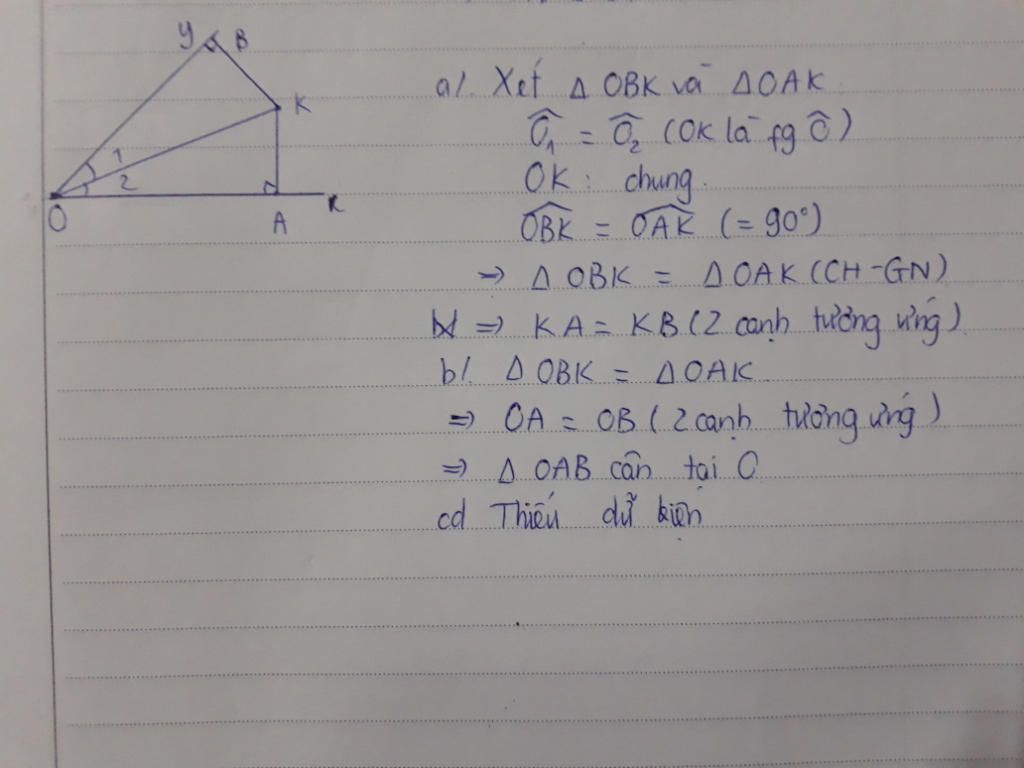 y B
K
1
2
O A x
a/. Xét Δ OBK và ΔOAK
Ô₁ = Ô₂ (OK là fg Ô)
OK : chung.
OBK = OAK (= 90°)
=> Δ OBK = Δ OAK (CH-GN)
=> KA = KB (2 cạnh tương ứng)
b/. Δ OBK = Δ OAK
=> OA = OB (2 cạnh tương ứng)
=> Δ OAB cân tại O
cd Thiếu dữ kiện